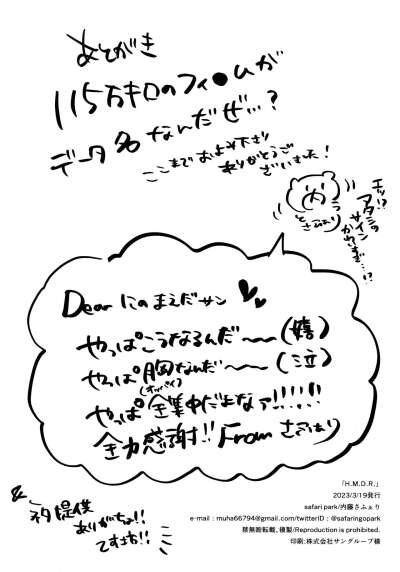 あとがき
115万キロのフィ●ムが
データ名なんだぜ…?
ここまでおよみ下さり
ありがとうご
ざいました!
エッ!?
アタシの
サイン
Dear にのまえださん
やっぱこうなるんだ〜〜(嬉)
やっぱ胸なんだ〜〜(泣)
(オッパイ)
やっぱ全集中だよなァ!!!!!!
全力感謝!! From さふぁり
& ネタ提供
ありがちょ!!
「H.M.D.R.」
2023/3/19発行
safari park/内藤さふぁり
e-mail : muha66794@gmail.com/twitterID : @safaringopark
禁無断転載、複製/Reproduction is prohibited.
印刷:株式会社サングループ様